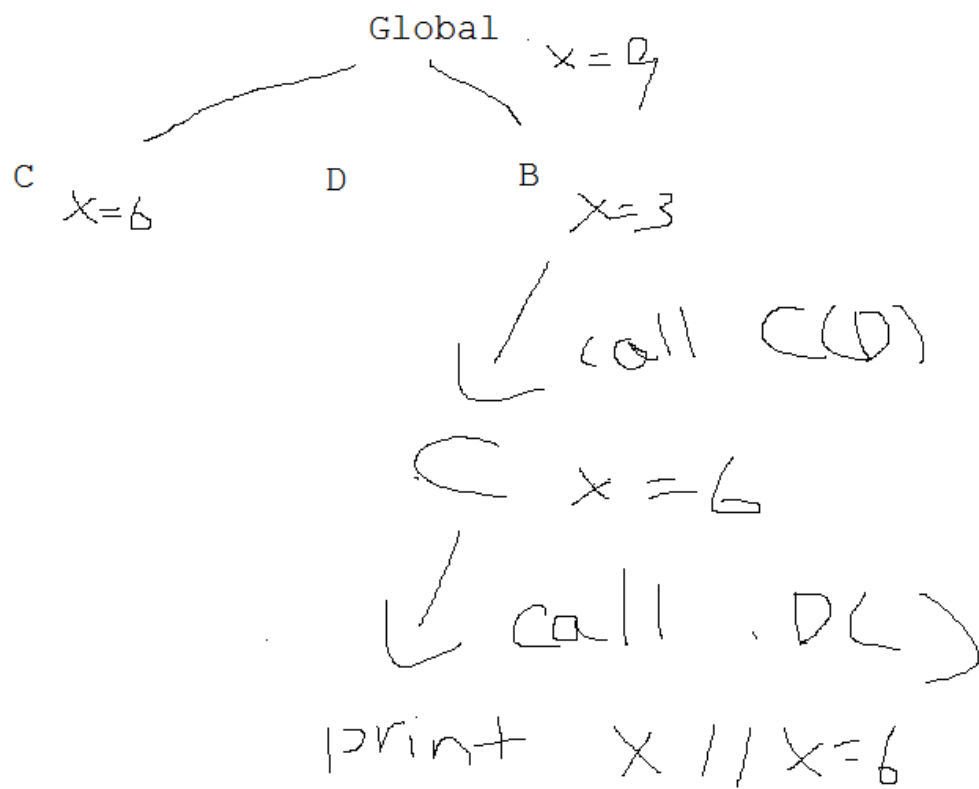 Global x = 9
C D B
x=6 x=3
call C(D)
C x = 6
call D()
print x // x=6